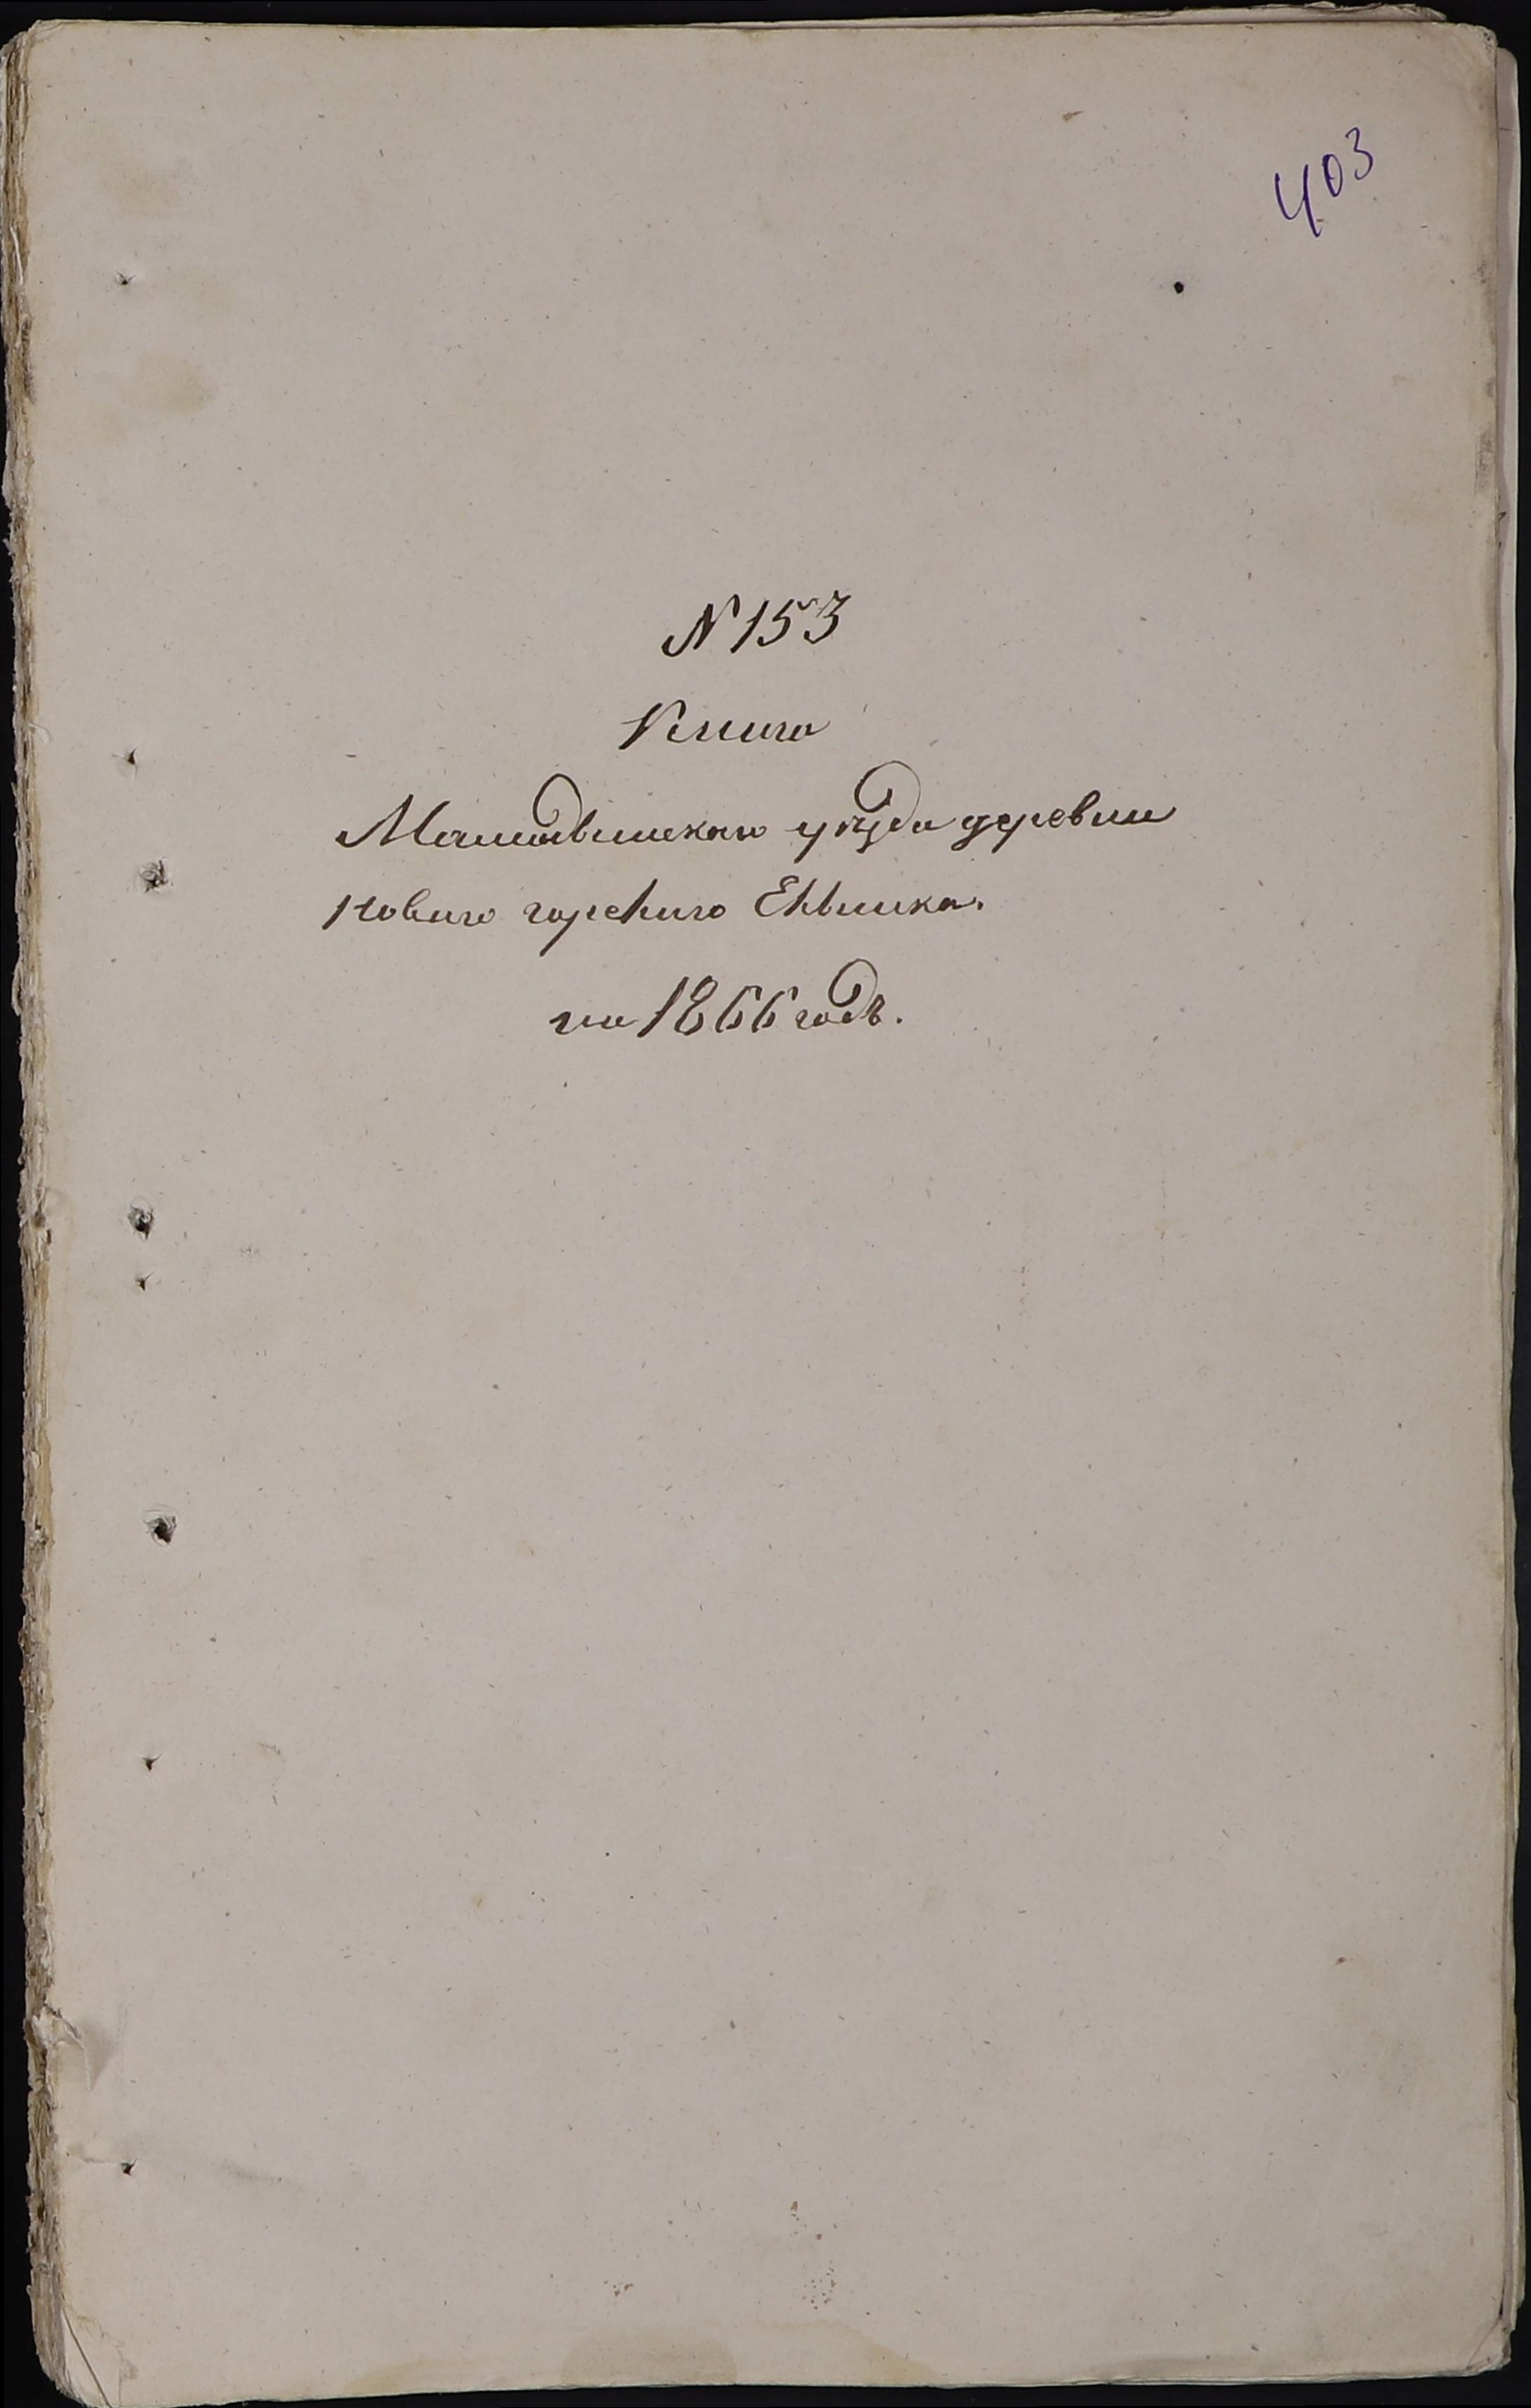 403
N 153
Книга
Мамадышскаго уѣзда деревни
Новаго горскаго Ельшика.
на 1866 годъ.